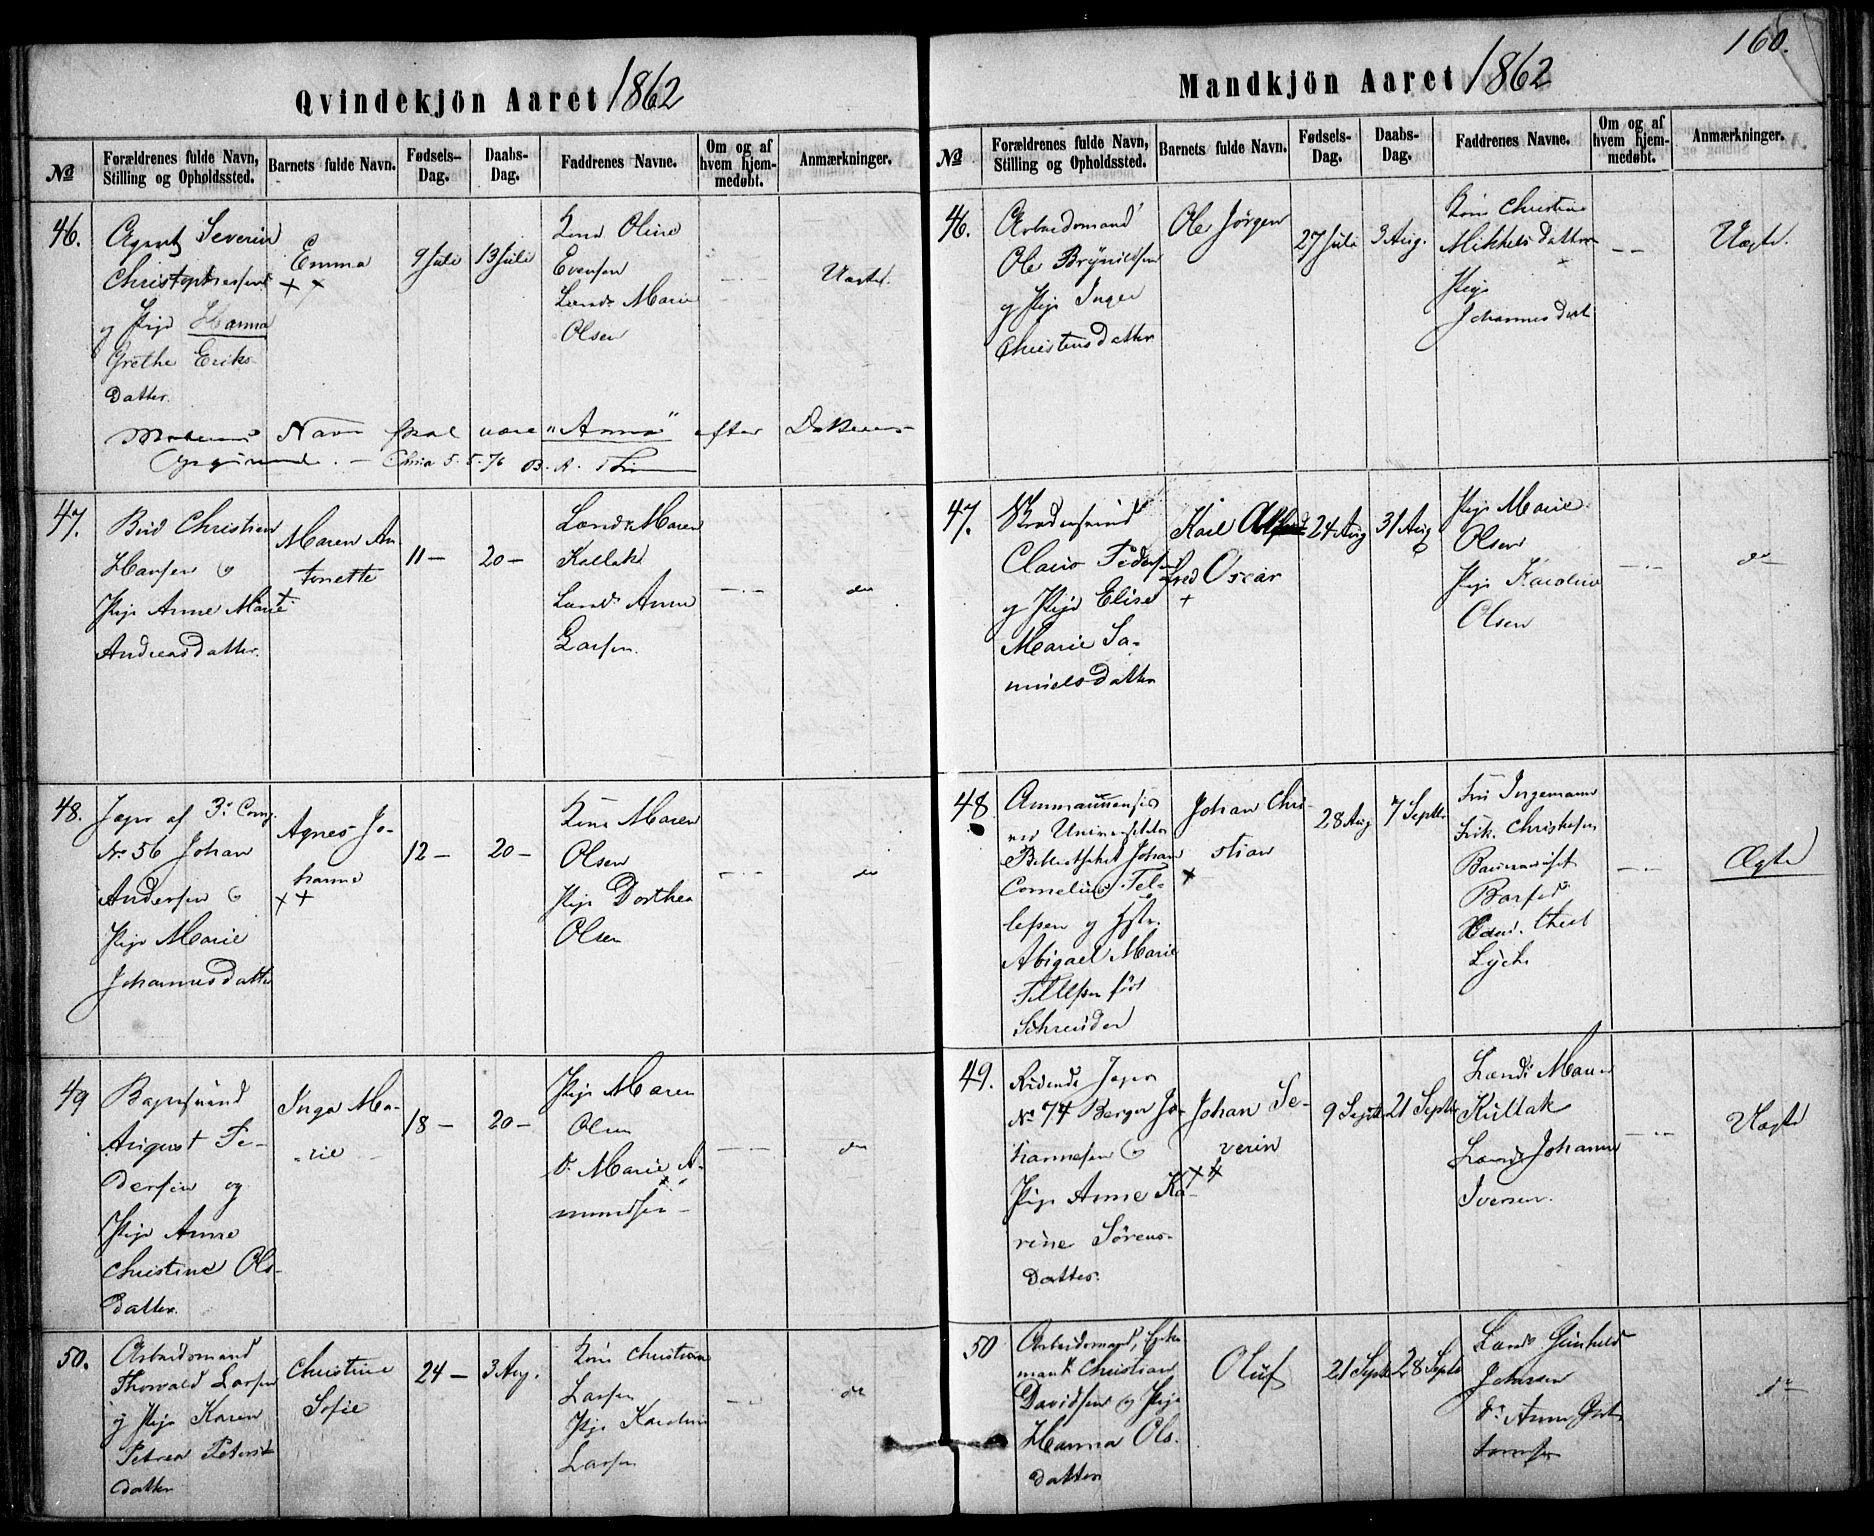 160.
Qvindekjön Aaret 1862
№
Forældrenes fulde Navn, Stilling og Opholdssted.
Barnets fulde Navn.
Fødsels-Dag.
Daabs-Dag.
Faddrenes Navne.
Om og af hvem hjem-medøbt.
Anmærkninger.
46.
Agent Severin
Christophersen
og Pige Hanna
Grethe Eriks
datter.
Emma
9 Juli
13 Juli
Kone Oline
Evensen
Marie
Olsen
Uægte.
Moderens Navn skal være "Anna" efter
Chria 5.5.76
47.
Christian
Hansen &
Pige Anne Marie
Andreasdatter.
Maren An-
tonette
11 –
20 –
Maren
Kullak
Anne
Larsen
do
48.
Jæger af 3. Comp.
No 56 Johan
Andersen &
Pige Marie
Johannesdatter
Agnes Jo-
hanne
12 –
20 –
Kone Maren
Olsen
Pige Dorthea
Olsen
do
49
Bagersvend
August Pe-
dersen og
Pige Anne
Christine Ols-
datter.
Inga Ma-
rie
18 –
20 –
Pige Maren
Olsen
do Marie A-
mundsen
do
50.
Arbeidsmand
Thorvald Larsen
og Pige Karen
Petrea Peters-
datter
Christine
Sofie
24 –
3 Aug.
Kone Christiane
Larsen
Pige Karoline
Larsen
do
Mandkjön Aaret 1862
№
Forældrenes fulde Navn, Stilling og Opholdssted.
Barnets fulde Navn.
Fødsels-Dag.
Daabs-Dag.
Faddrenes Navne.
Om og af hvem hjem-medøbt.
Anmærkninger.
46.
Arbeidsmand
Ole Brynildsen
og Pige Inger
Christensdatter
Ole Jörgen
27 Juli
3 Aug.
Kone Christine
Mikkelsdatter
Pige
Johannesdatt
Uægte.
47.
Pedersen
og Pige Elise
Marie Sa-
muelsdatter
Karl Alf
red Oscar
24 Aug
31 Aug
Pige Marie
Olsen
Pige Karoline
Olsen
do
48
Ammanuensis
ved Universitets
Bibliotheket Johan
Cornelius Tel-
lefsen og Hstr.
Abigael Marie
Tellefsen født
Schreuder
Johan Chri-
stian
28 Aug
7 Septbr
Fru Ingemann
Frk. Christensen
Barfod
Cand. theol
Lyche
Ægte
49.
Ridende Jæger
No 74 Berger Jo-
hannesen &
Pige Anne Ka-
rine Sörens-
datter.
Johan Se-
verin
9 Septbr
21 Septbr
Maren
Kullak
Johanne
Iversen.
Uægte
50
Arbeidsmand,
Christian
Davidsen og Pige
Hanna Ols-
datter
Oluf
21 Septbr
28 Septbr
Gunhild
Johnsen
do Anne
do